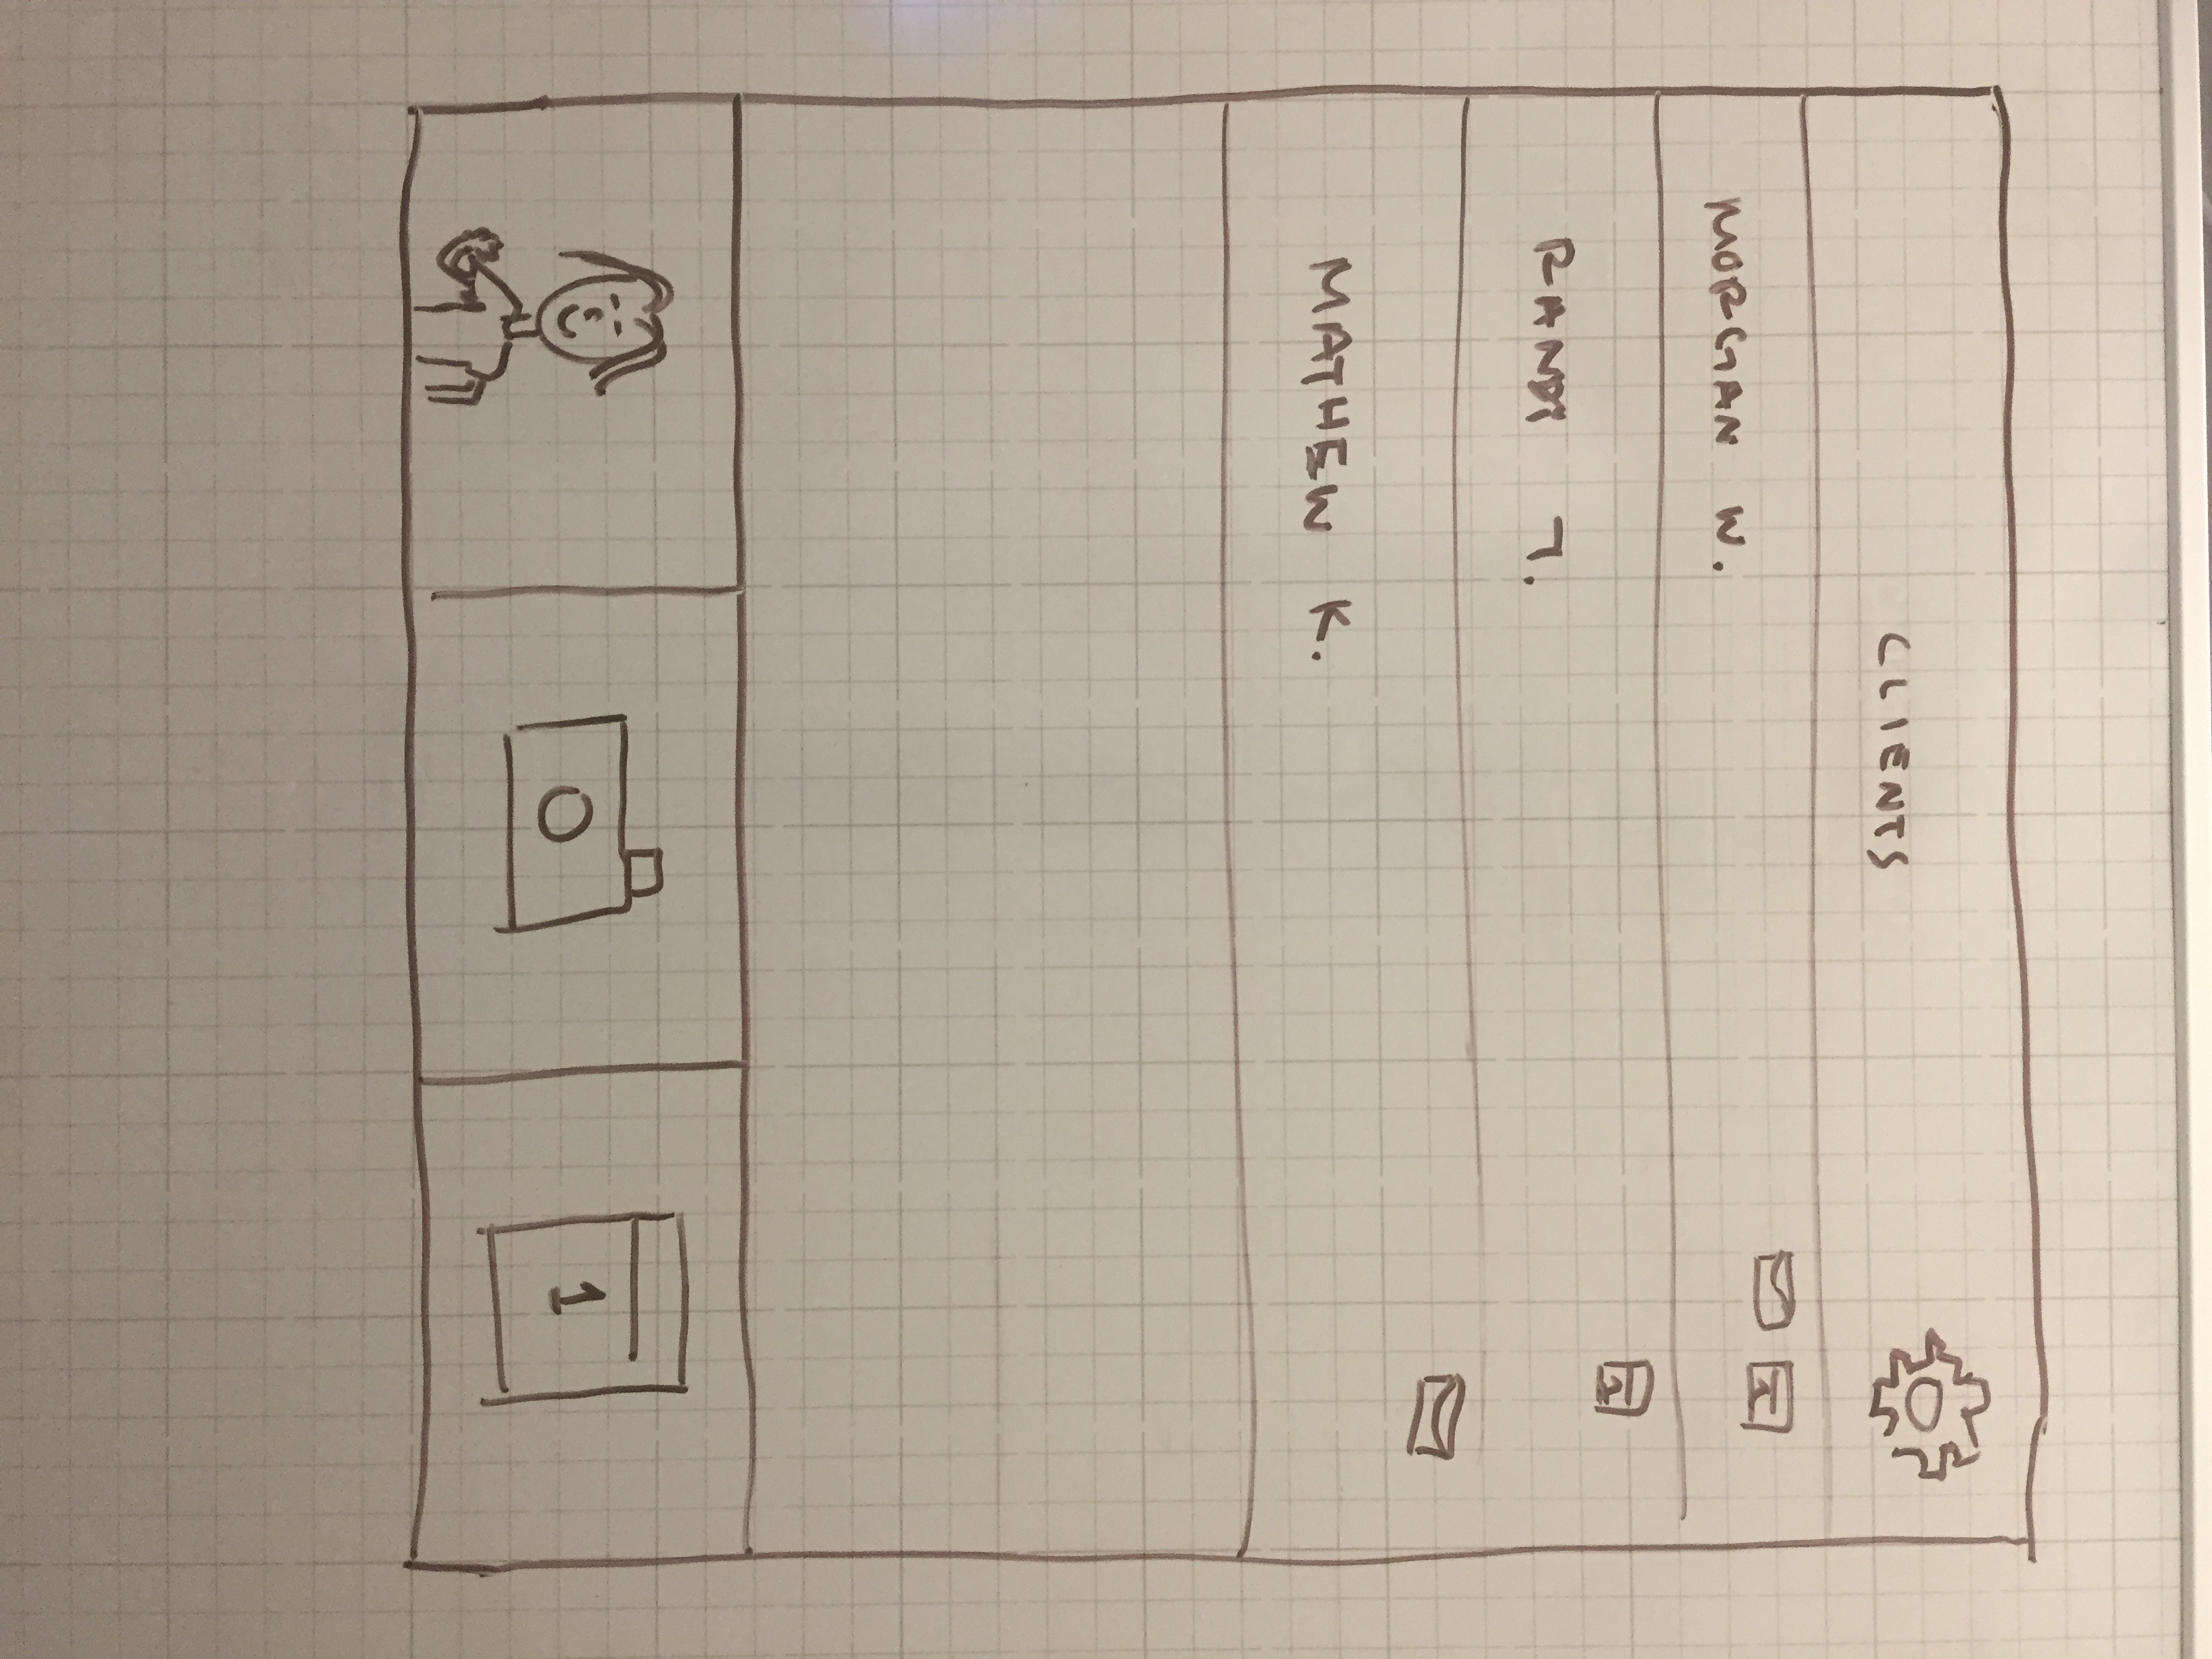 CLIENTS
MORGAN W. 1
RANDY T. 1
MATHEW K.
1